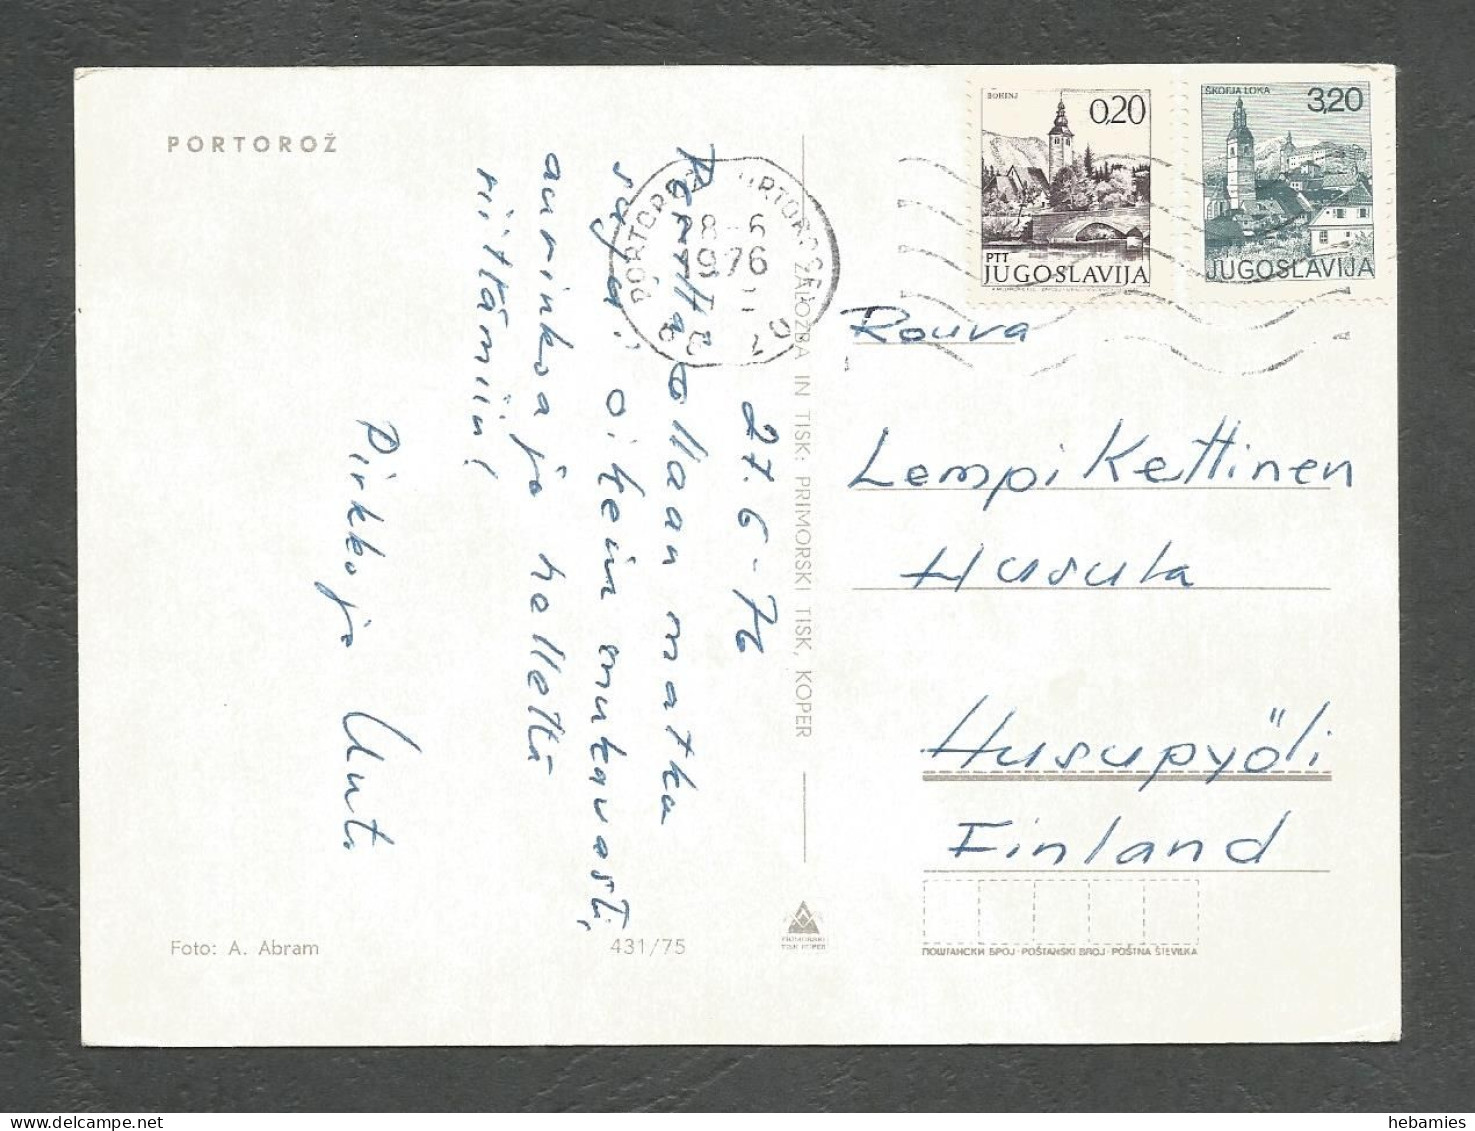 PORTOROŽ
BOHINJ
0,20
PTT
JUGOSLAVIJA
ŠKOFJA LOKA
3,20
JUGOSLAVIJA
PORTOROŽ
28-6
1976
27.6-76
ollaan matka
oikein mukavasti,
aurinkoa ja hellettä
riittämiin!
Pirkko ja
ZALOŽBA IN TISK: PRIMORSKI TISK, KOPER
Rouva
Lempi Kettinen
Husula
Husupyöli
Finland
PRIMORSKI
TISK KOPER
ПОШТАНСКИ БРОЈ · POŠTANSKI BROJ · POŠTNA ŠTEVILKA
Foto: A. Abram
431/75
hebamies